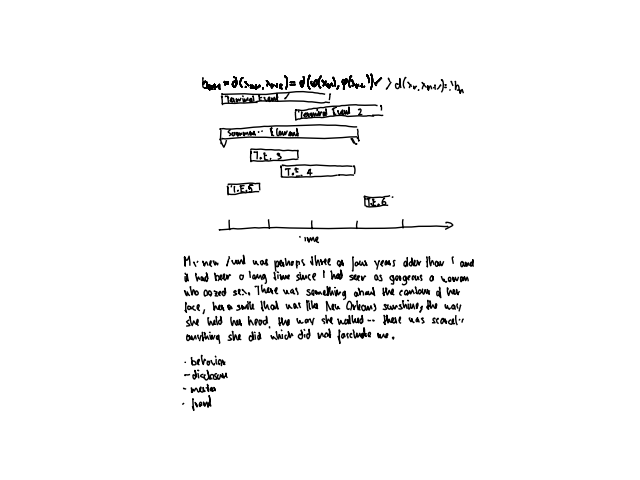 b = d(x, x) = d(φ(x), φ(x)) > d(x, x) = b
Terminal Event 1
Terminal Event 2
Summary Element
T.E. 3
T.E. 4
T.E. 5
T.E. 6
Time
My new friend was perhaps three or four years older than I and
it had been a long time since I had seen as gorgeous a woman
who oozed sex. There was something about the contour of her
face, her smile that was like New Orleans sunshine, the way
she held her head, the way she walked -- there was scarcely
anything she did which did not fascinate me.
· behavior
- disclosure
- master
· friend